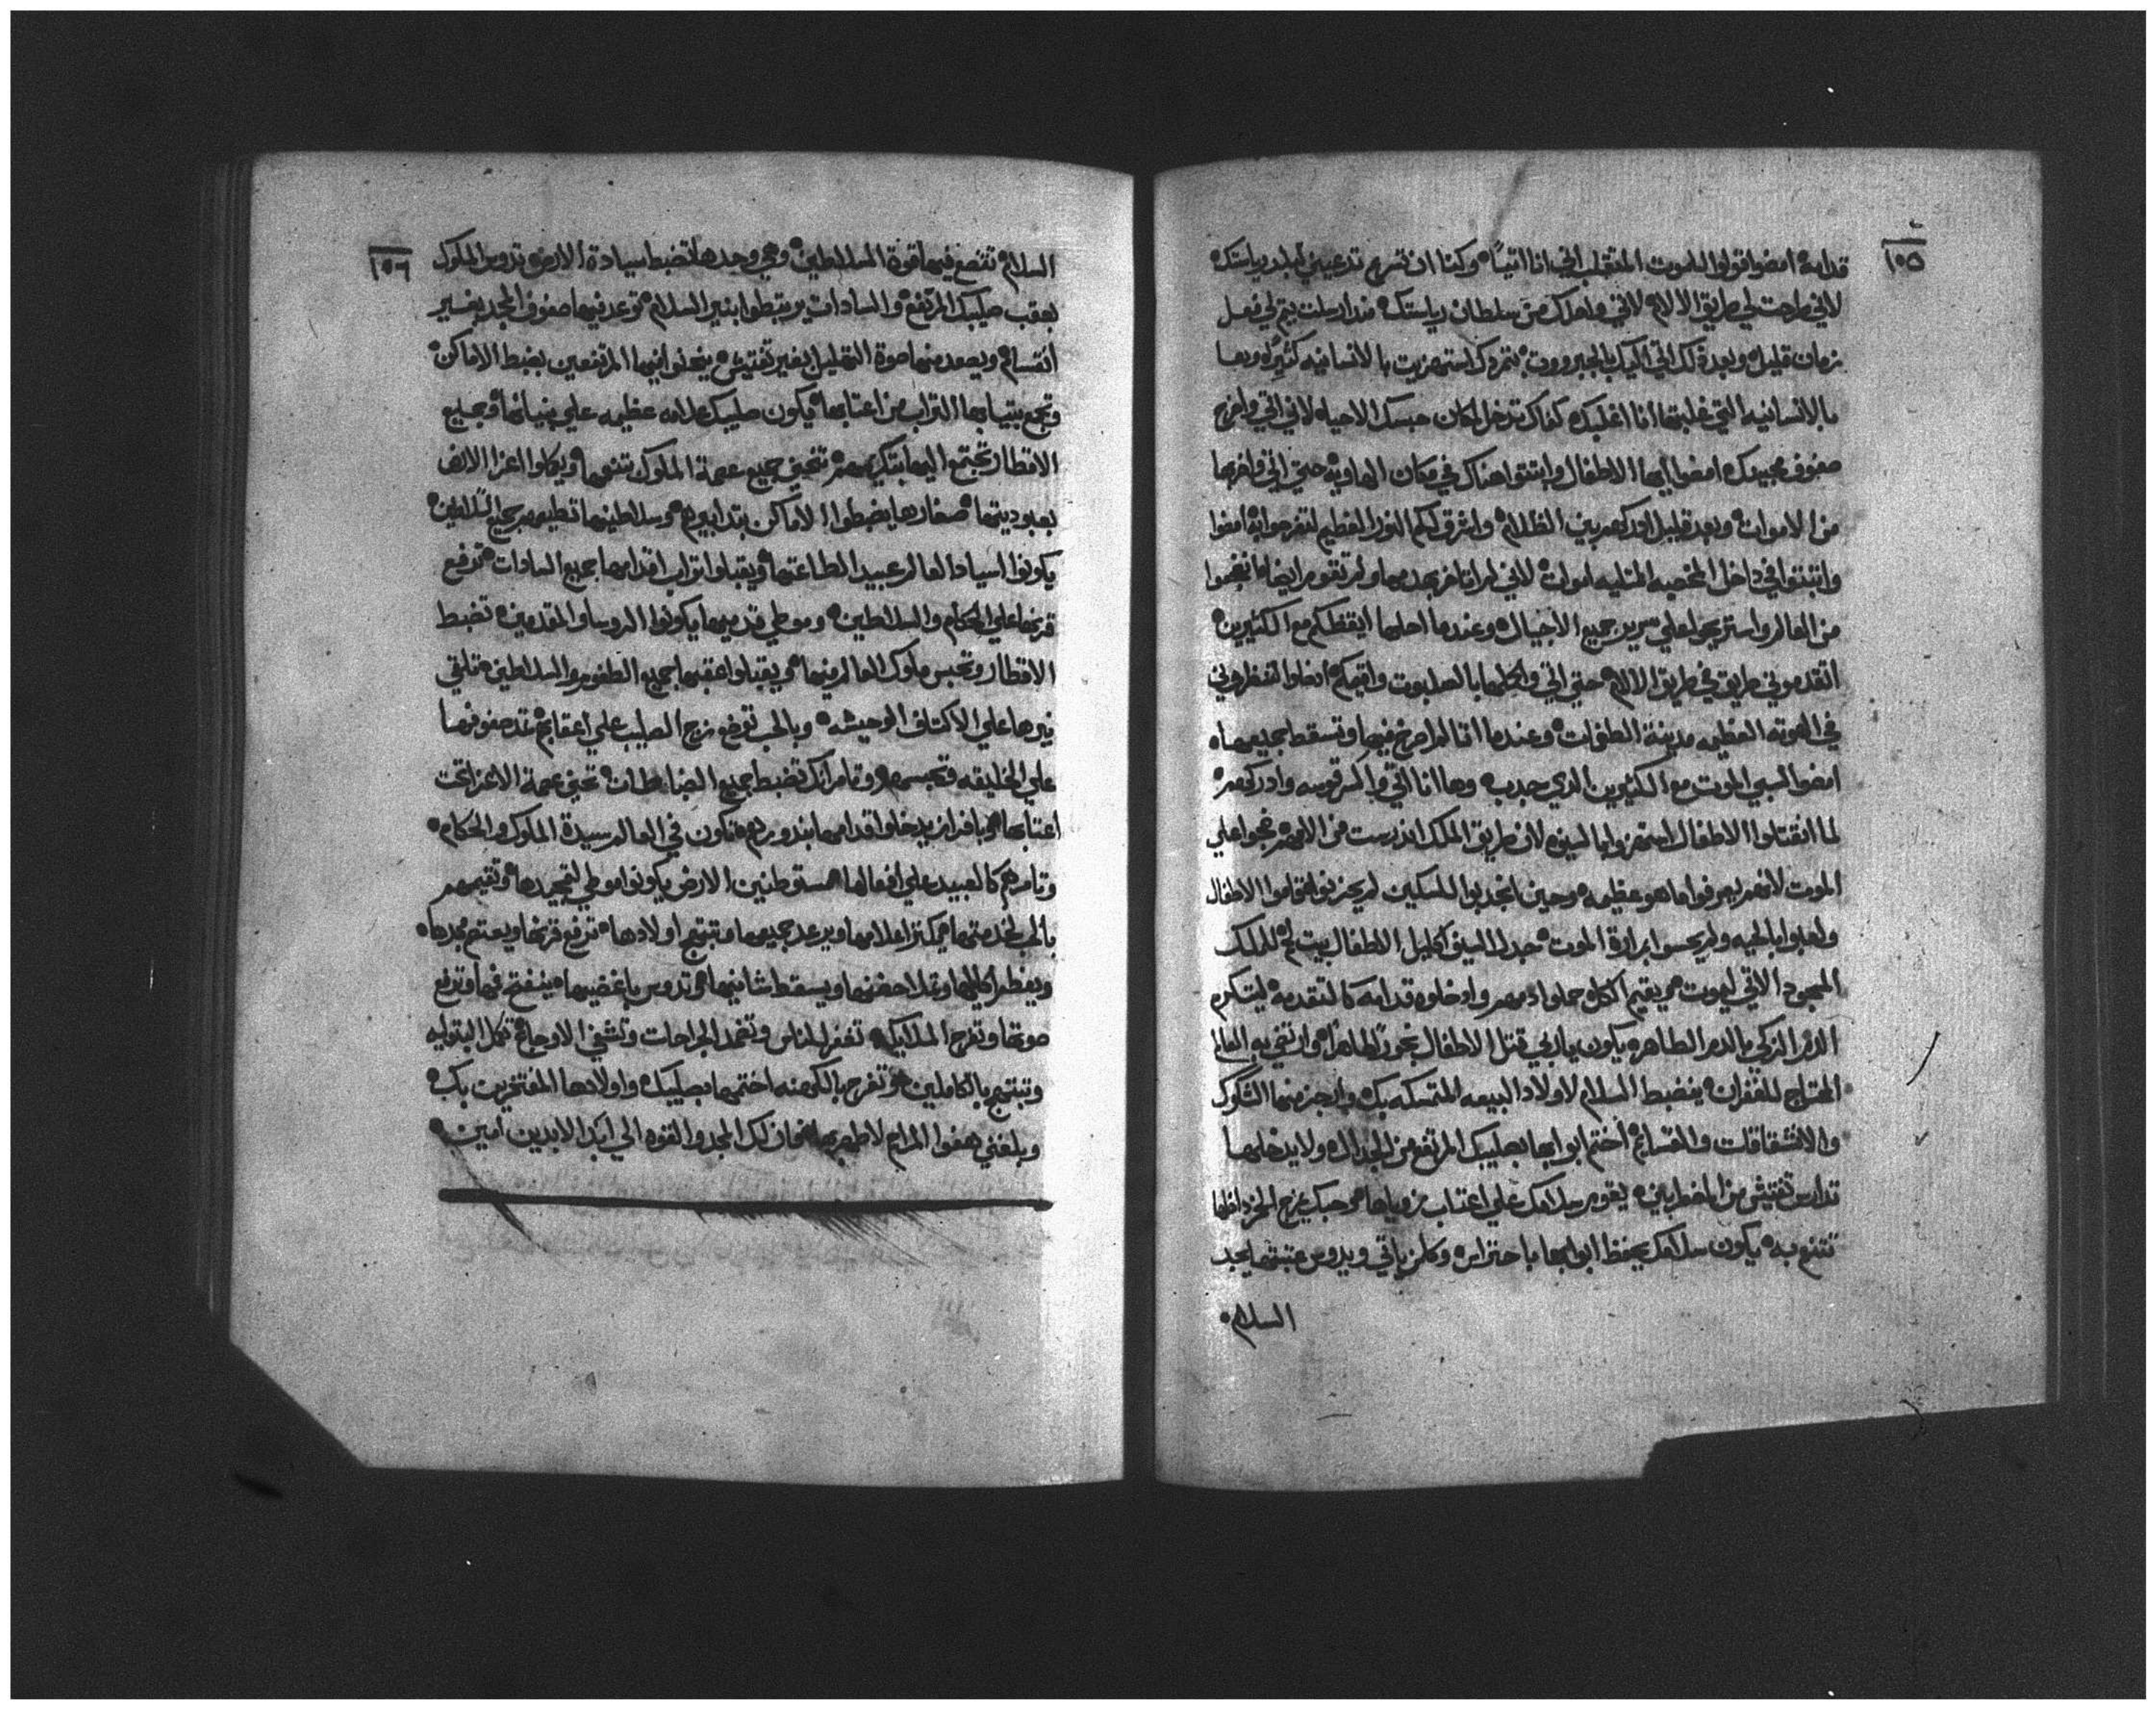 ١٥٥
قدامه امضوا قولوا للموت المتقلب اني انا اتياً وكنا ان تسرع تدعيني لبلد رياستك
لاني طرحت لي طريق الالام لاني واهدك من سلطان رياستك منذ ارسلت يتم لي فعل
زمان قليل وبعد ذلك اتي اليك بالجبرووت بتمردك استهزيت بالانسانيه كثيراً وبها
بالانسانيه التي غلبتها انا اغلبك كفاك تدخل لمكان حبسك الاحياه لاني اتي واخرج
صفوف محبيك امضوا ايها الاطفال وابتتوا هناك في مكان الهاويه حتي اتي واخربها
من الاموات وبعد قليل ادركهم بين الظلام واشرق لكم النور العظيم لتفرحوا به امضوا
واتبتوا في داخل المخصبه المتليه اموات لاني لم اتاخر بهدمها ولم تقوم ايضا
من العالم واستريحوا علي سرير جميع الاجيال وعندما احلها ايقظكم مع الكثيرين
اتقدموني طريق في طريق الالام حتي اتي واكللها بالصلبوت واقيمكم امضوا انتظروني
في الهوته العظيمه مدينة الطغوات وعندما انا الم اصرخ فيها وتسقط جميعها
امضوا لسبي الموت مع الكثيرين الذي جدبه وها انا اتي واكسر قوسه وادركهم
لما انقتلوا الاطفال استهزوا بالسيف لان طريق الملك اندرست من الامهم نجوا علي
الموت لانهم يعرفوا ما هو عظيمه وحين انجدبوا للسكين لم يحزنوا قاموا الاطفال
ولعبوا بالحيه ولم يحسوا بمرارة الموت جدل السيف اكليل الاطفال بيت لحم للملك
المسجود الاتي ليموت ويقيم الكل حملوا دمهم وادخلوه قدامه كالتقدمه ليتكرم
الدم الزكي بالدم الطاهر يكون يا ربي قتل الاطفال بخوراً طاهراً وانتقي به العالم
المحتاج للغفران ينضبط السلام لاولاد البيعه المتمسكه بك وانجز منها الشكوك
والانشقاقات والقسايم اختم ابوابها بصليبك المرتفع من الجدال ولا يدخلها
تدارس تفتيش من المضطربين يقوم سلامك علي اعتاب زوياها وحبك يزج المخزي افلها
تتنعم به يكون سلامك يحفظ ابوابها باحتراس وكلمن ياتي ويدوس عتبتها يجد
السلام
١٥٦
السلام تتضع فيها قوة السلاطين وهي وحدها تضبط سيادة الارض تدوس الملوك
بعقب صليبك المرتفع والسادات يرتبطوا بنير السلام توعد فيها صفوف المجد بغير
انقسام ويصعد منها صوة التهليل بغير تفتيش يتعلوا فيها المرتفعين بضبط الاماكن
وتجمع بتيابها التراب من اعتابها يكون صليبك علامه عظيمه علي بنيانها وجميع
الاقطار تجتمع اليها بتكريمهم تنحني جميع عصمة الملوك تنعمها ويكلوا اعزا الارض
بعبوديتها صغارها يضبطوا الاماكن بتدابيرهم وسلاطينها تطيعهم جميع السلاطين
يكونوا اسياد العالم عبيد الطاعتها ويقبلوا تراب اقدامها جميع السادات ترفع
قرنها علي الحكام والسلاطين وموطي قدميها يكونوا الروسا والمتقدمين تضبط
الاقطار وتحبس ملوك العالم فيها ويقبلوا عقبها جميع الطغوم والسلاطين تلقي
نيرها علي الاكتاف الوحيشه وبالحب ترفع زيج الصليب علي اعقابهم تمد صفوفها
علي الخليقه وتحبسهم وتامر انك تضبط جميع الضابطات تحني عصمة الاعزا تحت
اعتابها وبافراز يدخلوا قدامها بندورهم تكون في العالم سيدة الملوك والحكام
وتامرهم كالعبيد علي افعالها مستوطنين الارض يكونوا موطي لتمجيدها وتقيمهم
بالحب لخدمتها يكتر اعلامها ويرعد جميعها وتبتهج اولادها ترفع قرنها ويعتم مجدها
ويعظم اكليلها وتملا حضنها ويسقط شانيها وتدوس باغضيها ينفتح فمها وترفع
صوتها وتفرح الملايكه تغفر للناس وتضمد الجراحات وتشفي الاوجاع تكمل البتوليه
وتبتهج بالكاملين وتفرح بالكهنه اختمها بصليبك واولادها المفتخرين بك
وبلغني هفوا المرام لاطهر بها فان لك المجد والقوه الي ابد الابدين امين